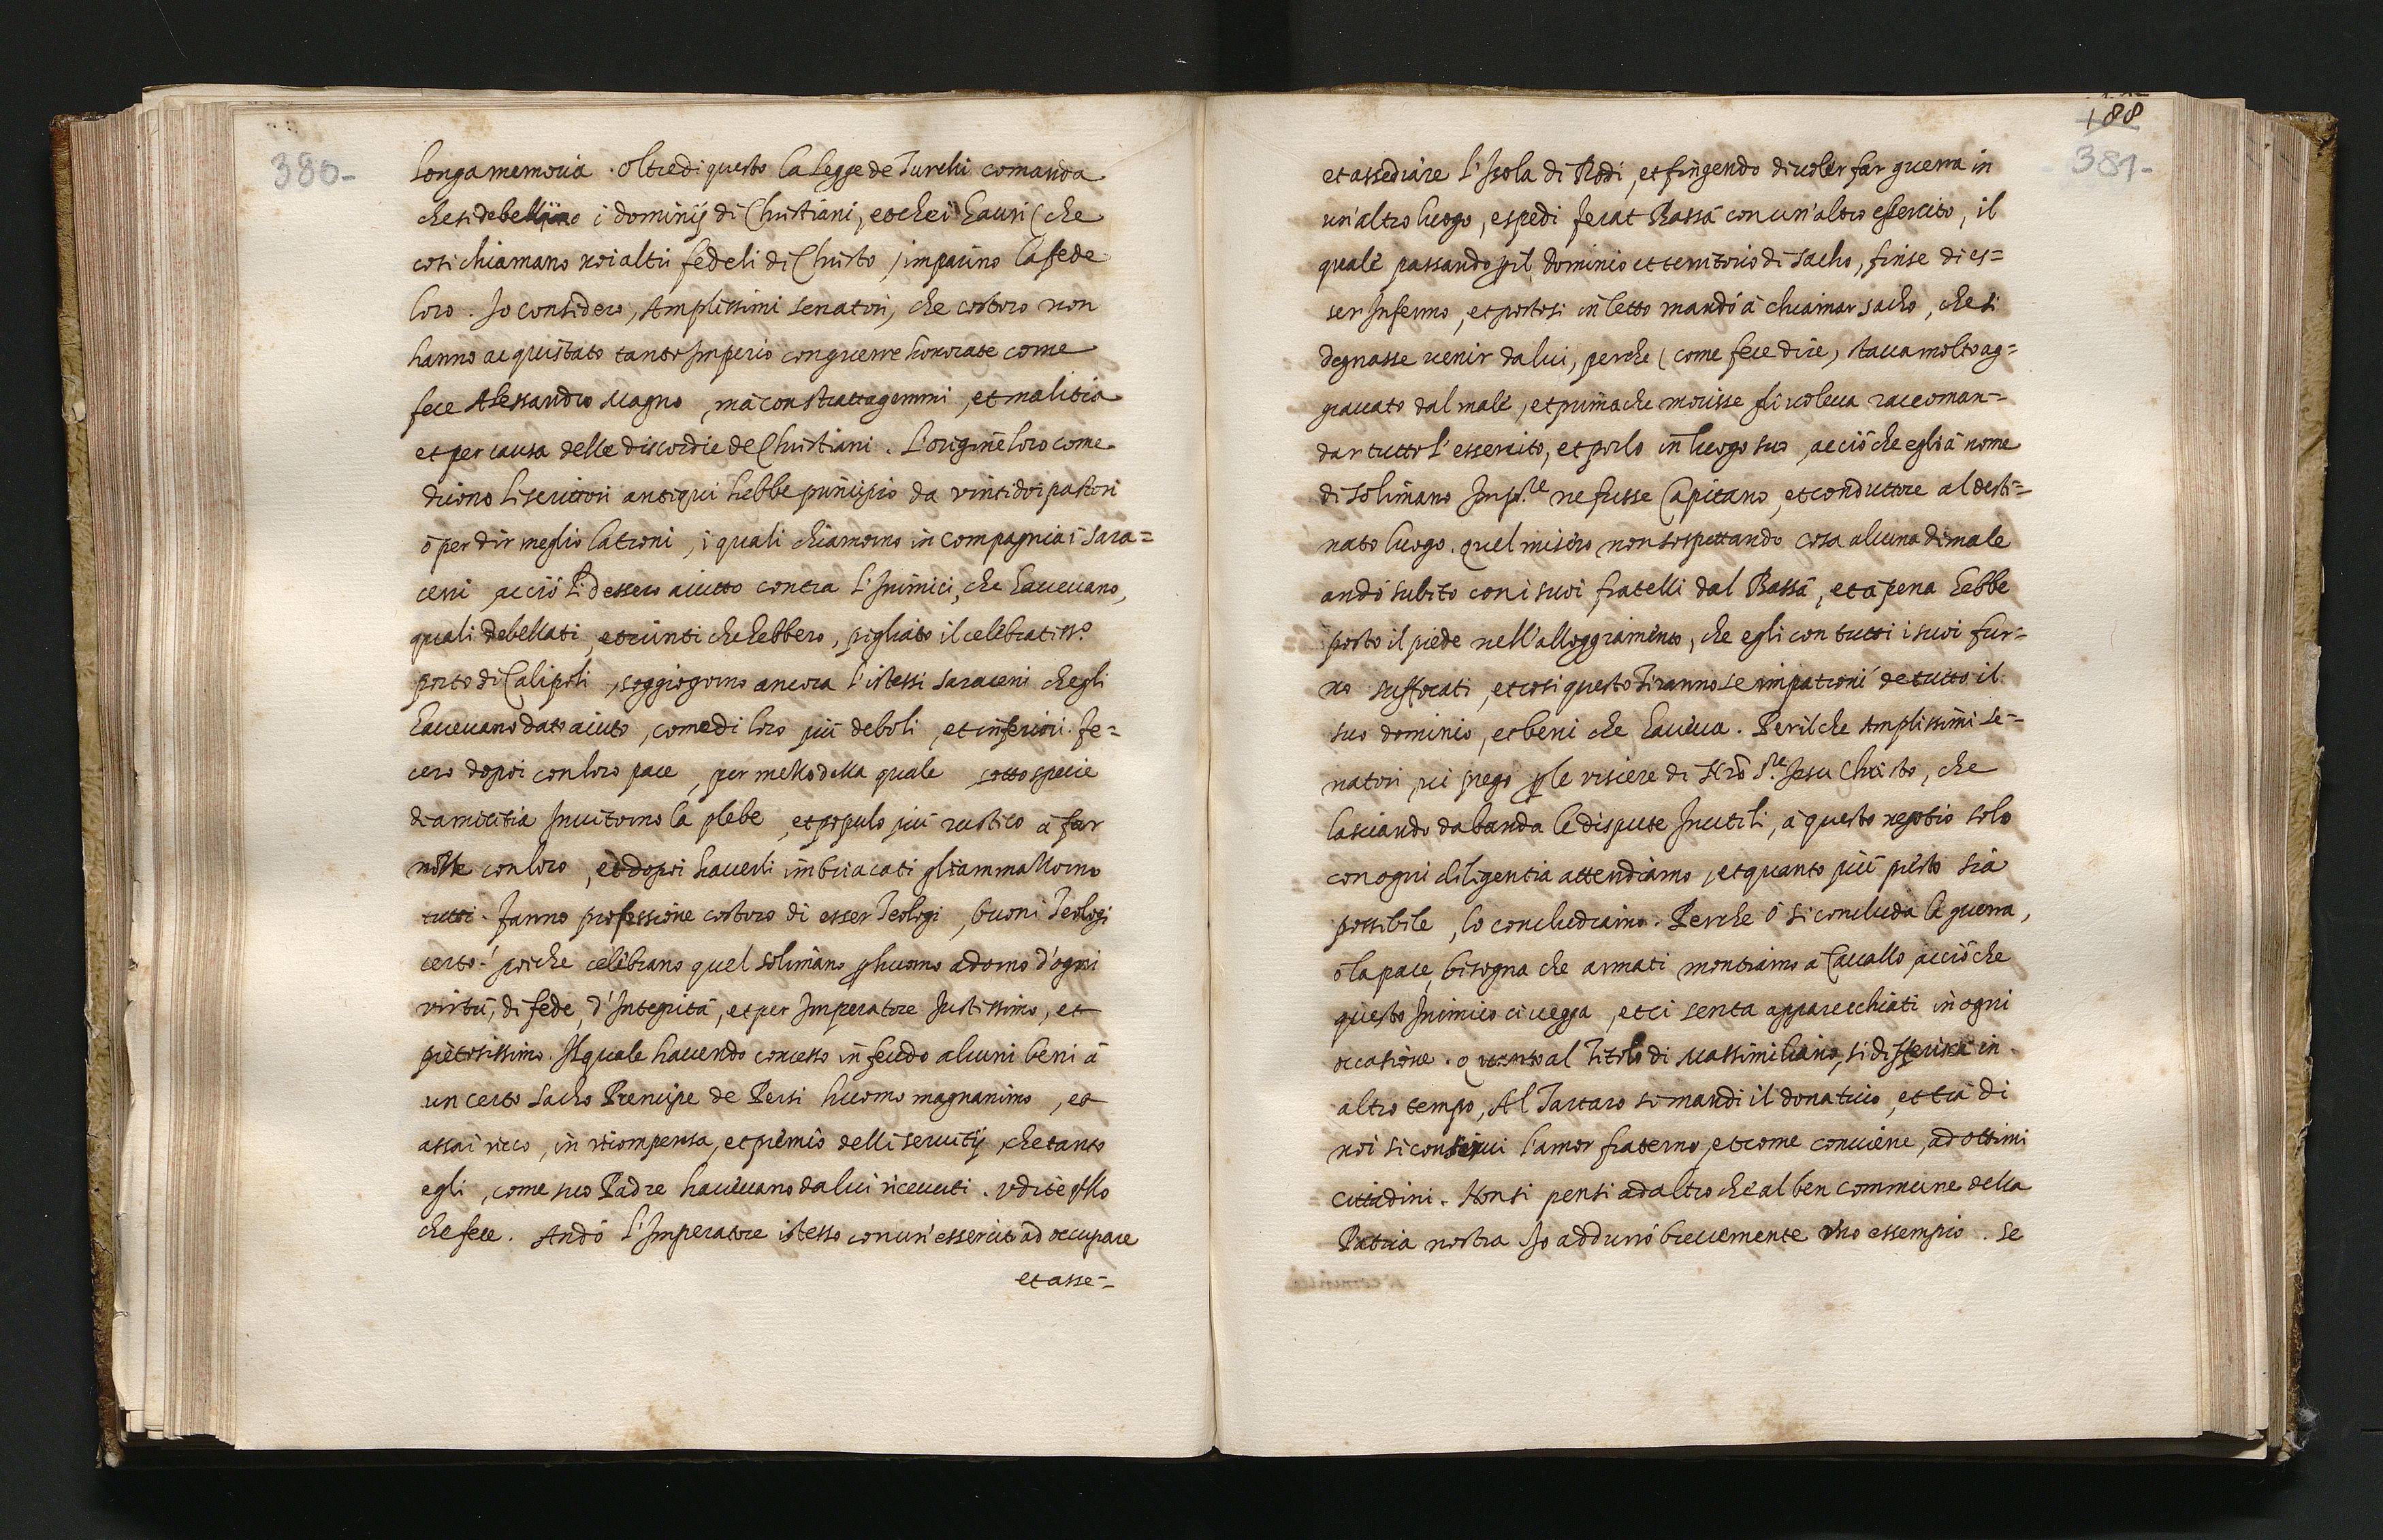 380-
longa memoria. Oltre di questo la legge de Turchi comanda
che si debellino i dominij di Christiani, et che i Gauri (che
cosi chiamano noi altri fedeli di Christo) imparino la fede
loro. Io considero, Amplissimi Senatori, che costoro non
hanno acquistato tanto Imperio con guerre honorate come
fece Alessandro Magno, mà con strattagemmi, et malitia
et per causa delle discordie de Christiani. L'origine loro come
dicono li scrittori antiqui hebbe principio da vintidoi pastori
ò per dir meglio latroni, i quali chiamorno in compagnia i Sara=
ceni acciò li dessero aiutto contra l'Inimici, che haveuano,
quali debellati, et vinti che hebbero, pigliato il celebratiss.o
porto di Calipoli, soggiogorno ancora l'istessi saraceni che gli
haveuano dato aiuto, come di loro più deboli, et inferiori. fe=
cero dopoi con loro pace, per mezzo della quale sotto specie
di amicitia Invitorno la plebe, et populo più rustico à far
nozze con loro, et dopoi haverli imbriacati gli ammazzorno
tutti. Fanno professione costoro di esser Teologi, buoni Teologi
certo! poiche celebrano quel Solimano p huomo adorno d'ogni
virtù, di fede, d'Integrità, et per Imperatore Justissimo, et
pietosissimo. Il quale havendo concesso in feudo alcuni beni à
un certo Sacho Prencipe de Persi huomo magnanimo, et
assai ricco, in ricompensa, et premio delli servitij, che tanto
egli, come suo Padre haveuano da lui riceuuti. Udite qllo
che fece. Andò l'Imperatore istesso con un' essercito ad occupare
et asse=
188
381-
et assediare l'Isola di Rodi, et fingendo di voler far guerra in
un'altro luogo, espedi ferat Bassà con un'altro essercito, il
quale passando p il dominio et territorio di Sacho, finse di es=
ser Infermo, et postosi in letto mandò à chiamar Sacho, che si
degnasse venir da lui, perche (come fece dire) stava molto ag=
gravato dal male, et prima che morisse gli voleva raccoman=
dar tutto l'essercito, et porlo in luogo suo, acciò che egli à nome
di Solimano Imp.re ne fusse Capitano, et conduttore al desti=
nato luogo. Quel misero non sospettando cosa alcuna di male
andò subito con i suoi fratelli dal Bassà, et à pena hebbe
posto il piede nell'alloggiamento, che egli con tutti i suoi fur=
no suffocati, et cosi questo Tiranno se impatroni de tutto il
suo dominio, et beni che haveva. Per il che Amplissimi Se=
natori, vi prego p le viscere di Nrõ S.re Jesu Christo, che
lasciando da banda le dispute Inutili, à questo negotio solo
con ogni diligentia attendiamo, et quanto più presto sia
possibile, lo concludiamo. Perche ò si concluda la guerra,
ò la pace, bisogna che armati montiamo à Cavallo acciò che
questo Inimico ci vegga, et ci senta apparecchiati in ogni
occasione. Quanto al Titolo di Massimiliano, si differisca in
altro tempo, Al Tartaro si mandi il donativo, et trà di
noi si conservi l'amor fraterno, et come conviene, ad ottimi
Cittadini. Non si pensi ad altro che al ben commune della
Patria nostra. Io addurrò brevemente uno essempio. Se